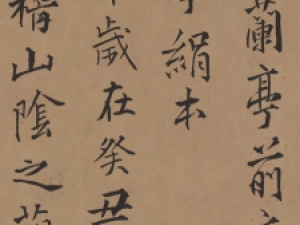 蘭亭前
絹本
歲在癸丑
稽山陰之